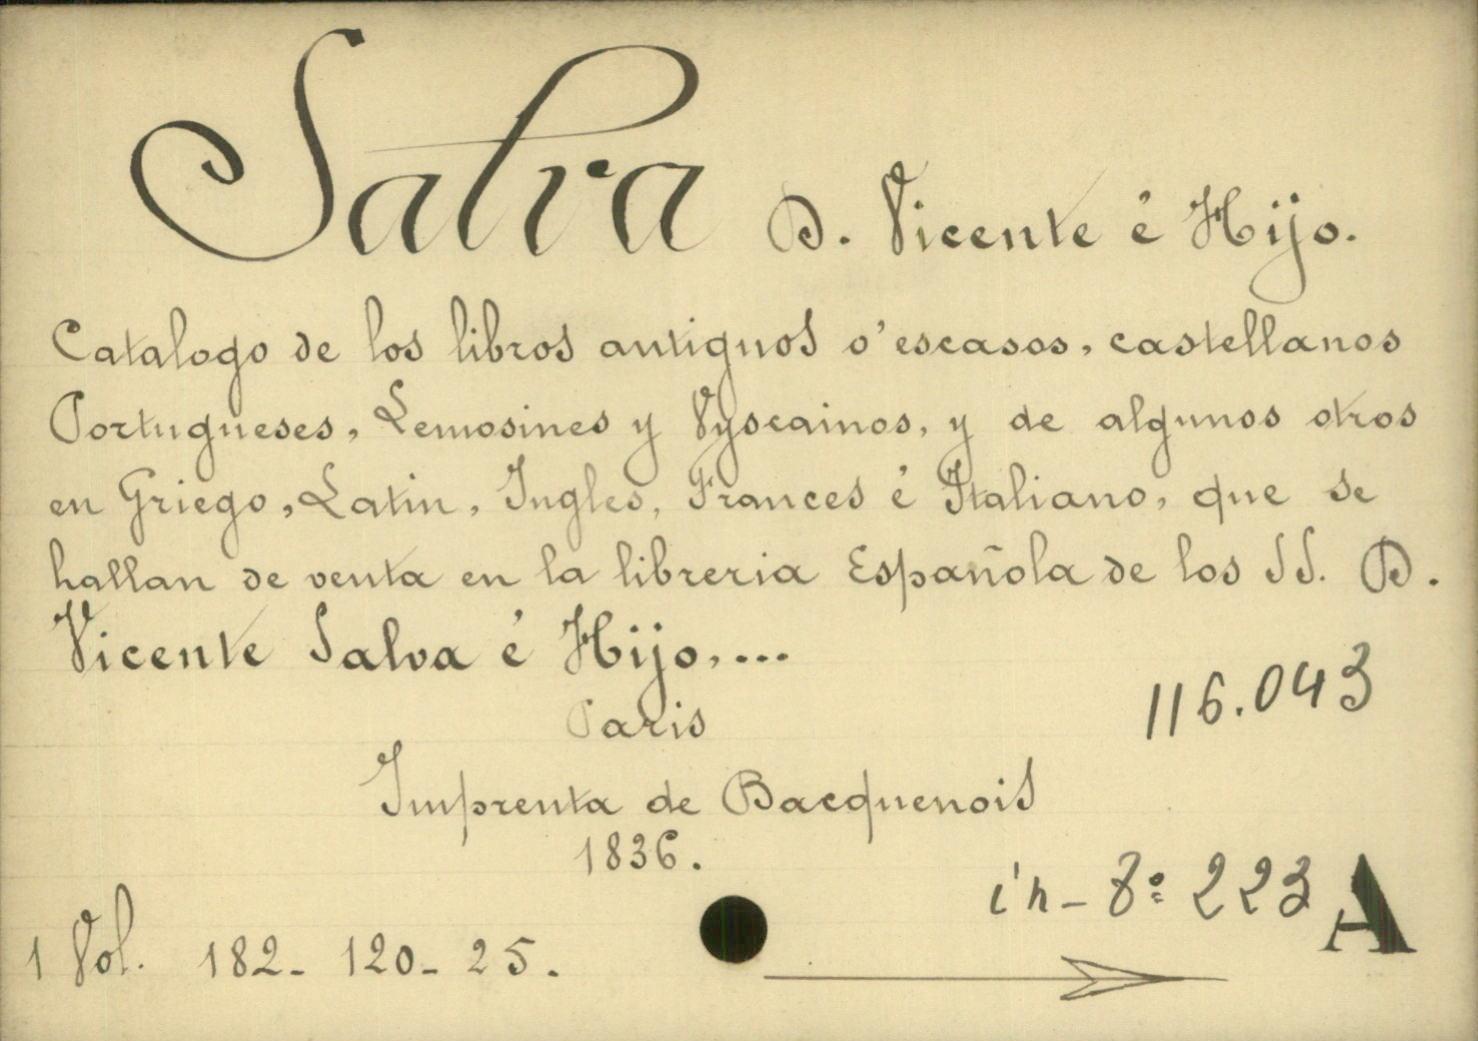 Salva D. Vicente é Hijo.
Catalogo de los libros antiguos o' escasos, castellanos
Portugueses, Lemosines y Vyscainos, y de algunos otros
en Griego, Latin, Ingles, Frances é Italiano, que se
hallan de venta en la libreria Española de los SS. D.
Vicente Salva é Hijo,...
Paris
116.043
Imprenta de Bacquenois
1836.
in-8º 223 A
1 Vol. 182- 120- 25.